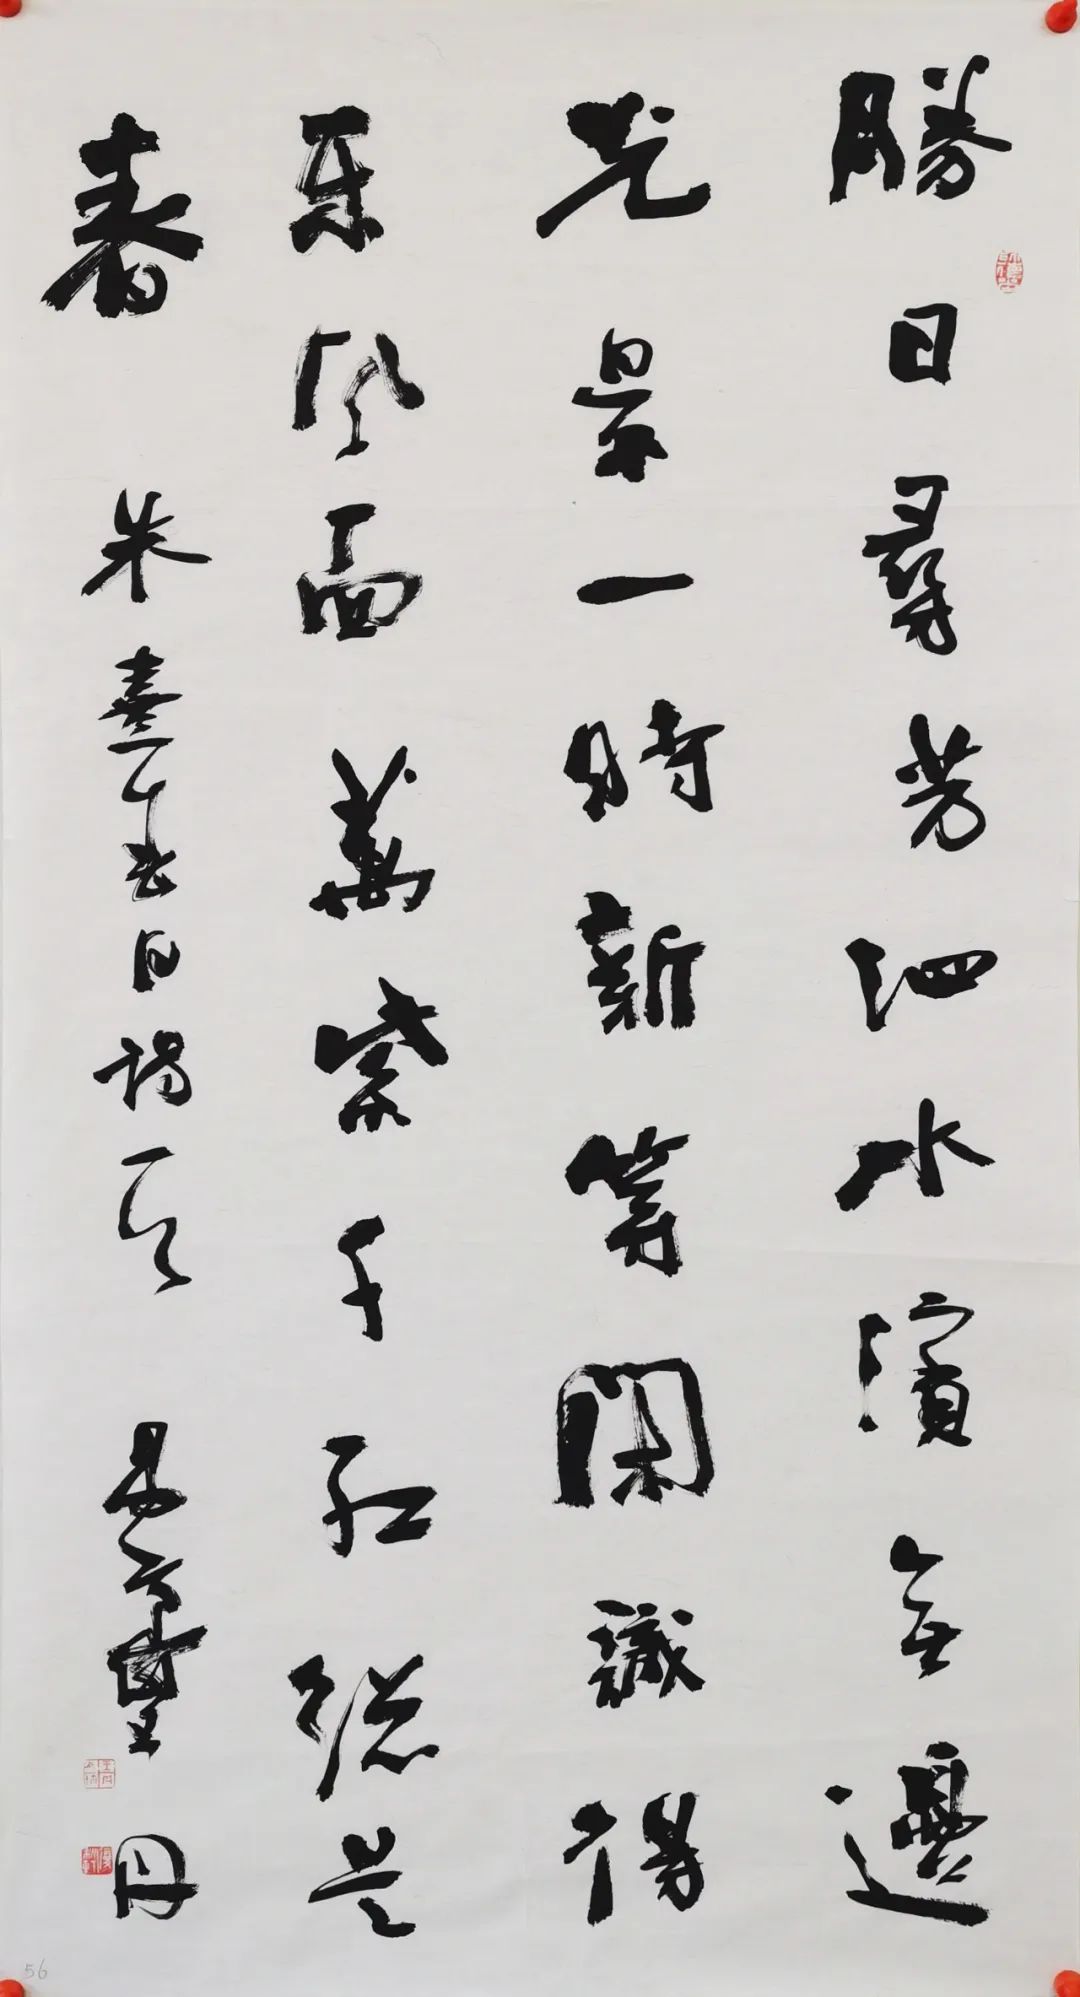 勝日尋芳泗水濱無邊
光景一時新等閑識得
東風面萬紫千紅總是
春 朱熹春日詩一首
56